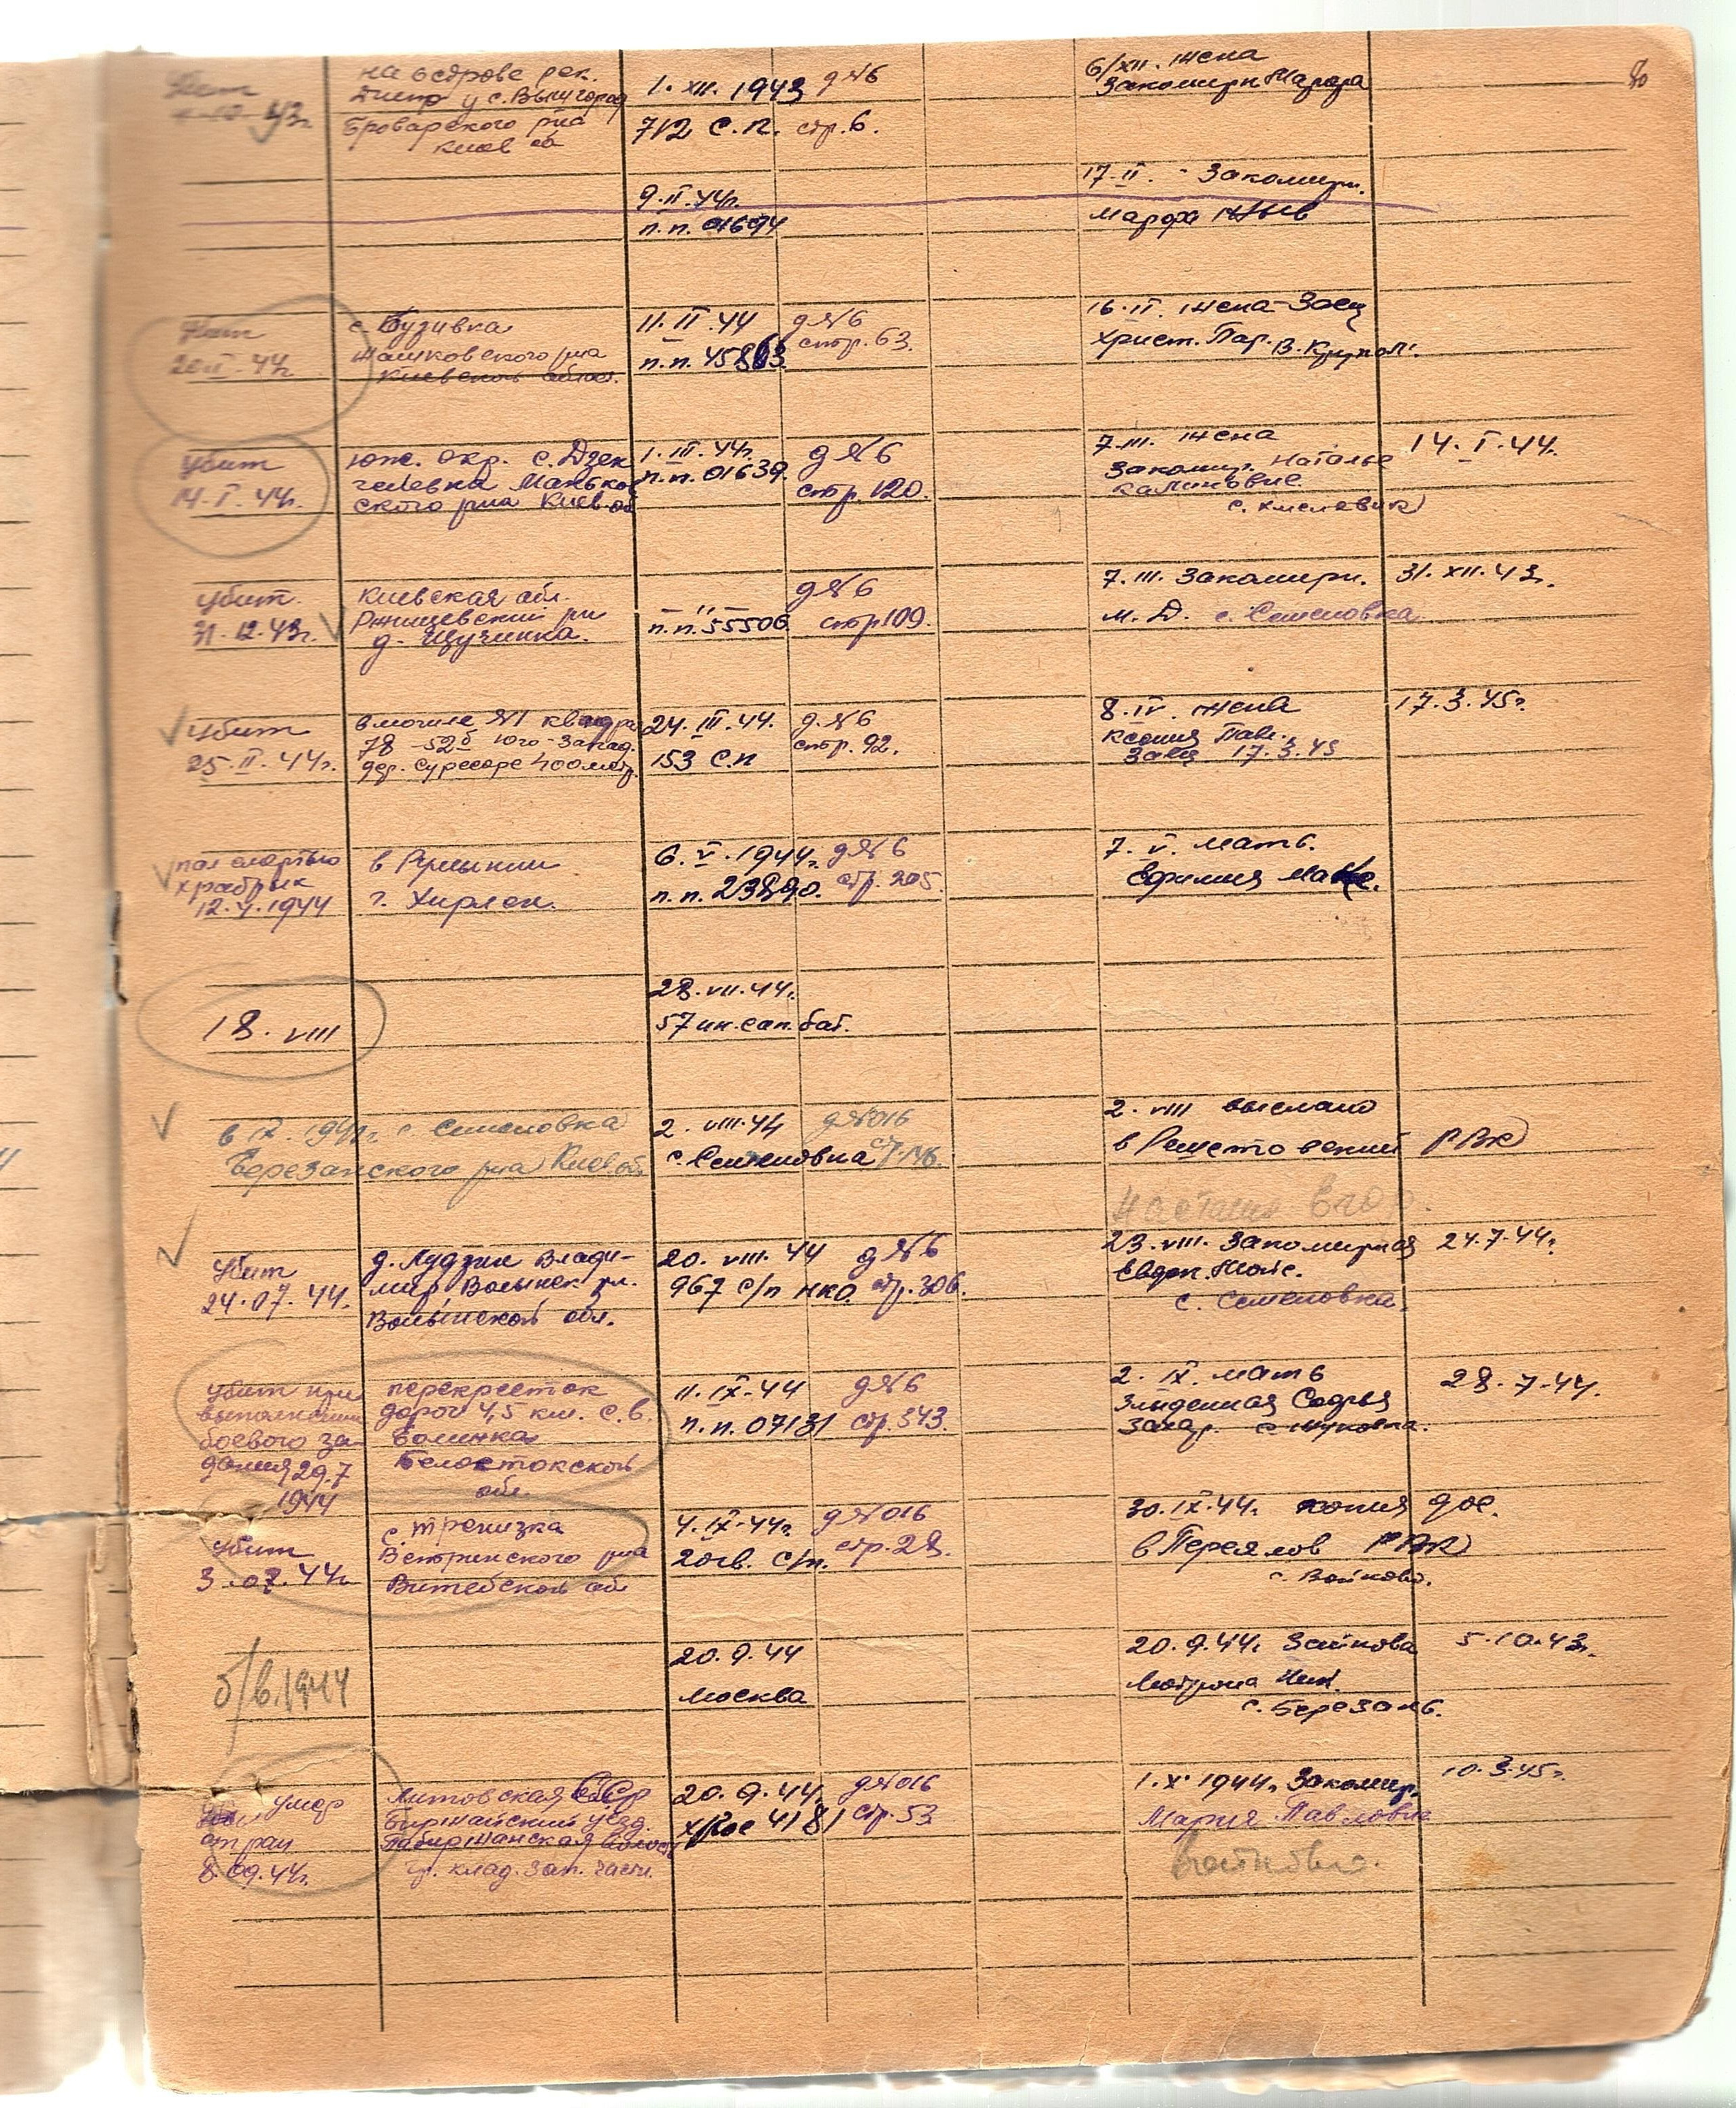 80
убит
на острове рек.
Днепр у с. Вышгород
Броварского р-на
Киев об
1. XII. 1943 д №6
712 с.п. стр. 6.
6/XII. жена
Закомирн
9. II. 44г.
п.п. 01694
17. II. - Закомирн.
Марфа
убит
20. II. 44г.
с. Бузивка
Жашковского р-на
Киевской област.
11. II. 44
п.п. 45863
д №6
стр. 63.
16. II. жена Заец
Христ. Пар. в. Крупол.
убит
14. I. 44г.
юж. окр. с. Дзен
гелевка Манько
ского р-на Киев. об
1. III. 44г.
п.п. 01639.
д №6
стр. 120.
7. III. жена
Закомир. Наталье
Калиновне.
14. I. 44.
убит.
31. 12. 43г.
Киевская обл.
Ржищевский р-н
д. Щучинка.
п.п. 55506
д №6
стр 109.
7. III. Закомирн.
М. Д. с. Семеновка
31. XII. 43г.
убит
25. II. 44г.
в могиле №1 квадра
78 -52б Юго-Запад.
дер. Суресаре 400 метр
24. III. 44.
153 с.п
д. №6
стр. 92.
8. IV. жена
Ксения Павл.
Заец 17. 3. 45
17. 3. 45г.
пал смертью
храбрых
12. 4. 1944
в Румынии
г. Хирлен.
6. V. 1944г.
п.п. 23890.
д №6
стр. 205.
7. V. мать.
Ефимия
18. VIII
28. VII. 44г.
57 ин. сап. бат.
в IX. 194 г. с. Семеновка
Березанского р-на Киев об.
2. VIII. 44
с. Семеновка
д №016
ст. 146.
2. VIII выслано
в Решетовский РВК
убит
24. 07. 44.
д. Лудзин Влади-
мир Волынск р-н.
Волынской обл.
20. VIII. 44
967 с/п нко.
д №6
стр. 306.
23. VIII. Закомирная
Евдок. Мойс.
с. Семеновка.
24. 7. 44г.
убит при
выполнении
боевого за-
дания 29. 7
1944
перекресток
дорог 4,5 км. с.в.
Болинка
Белостокской
обл.
11. IX. 44
п.п. 07131
д №6
стр. 343.
2. IX. мать
Злиденная Софья
Захар.
28. 7. 44.
убит
3. 07. 44г.
с. Тренизка
Ветринского р-на
Витебской об
4. IX. 44г.
20 гв. с/п.
д №016
стр. 28.
30. IX. 44г. копия дос.
в Переяслов РВК
с. Войково.
б/в. 1944
20. 9. 44
Москва
20. 9. 44г. Зайкова
Мотрона
с. Березань.
5. 10. 43г.
умер
от ран
8. 09. 44г.
Литовская ССР
Биржайский уезд.
Пабиржанская волость
гр. клад. зап. части.
20. 9. 44г.
4181
д №016
стр. 53
1. X. 1944г. Закомир.
Мария Павловне
Войково.
10. 3. 45г.